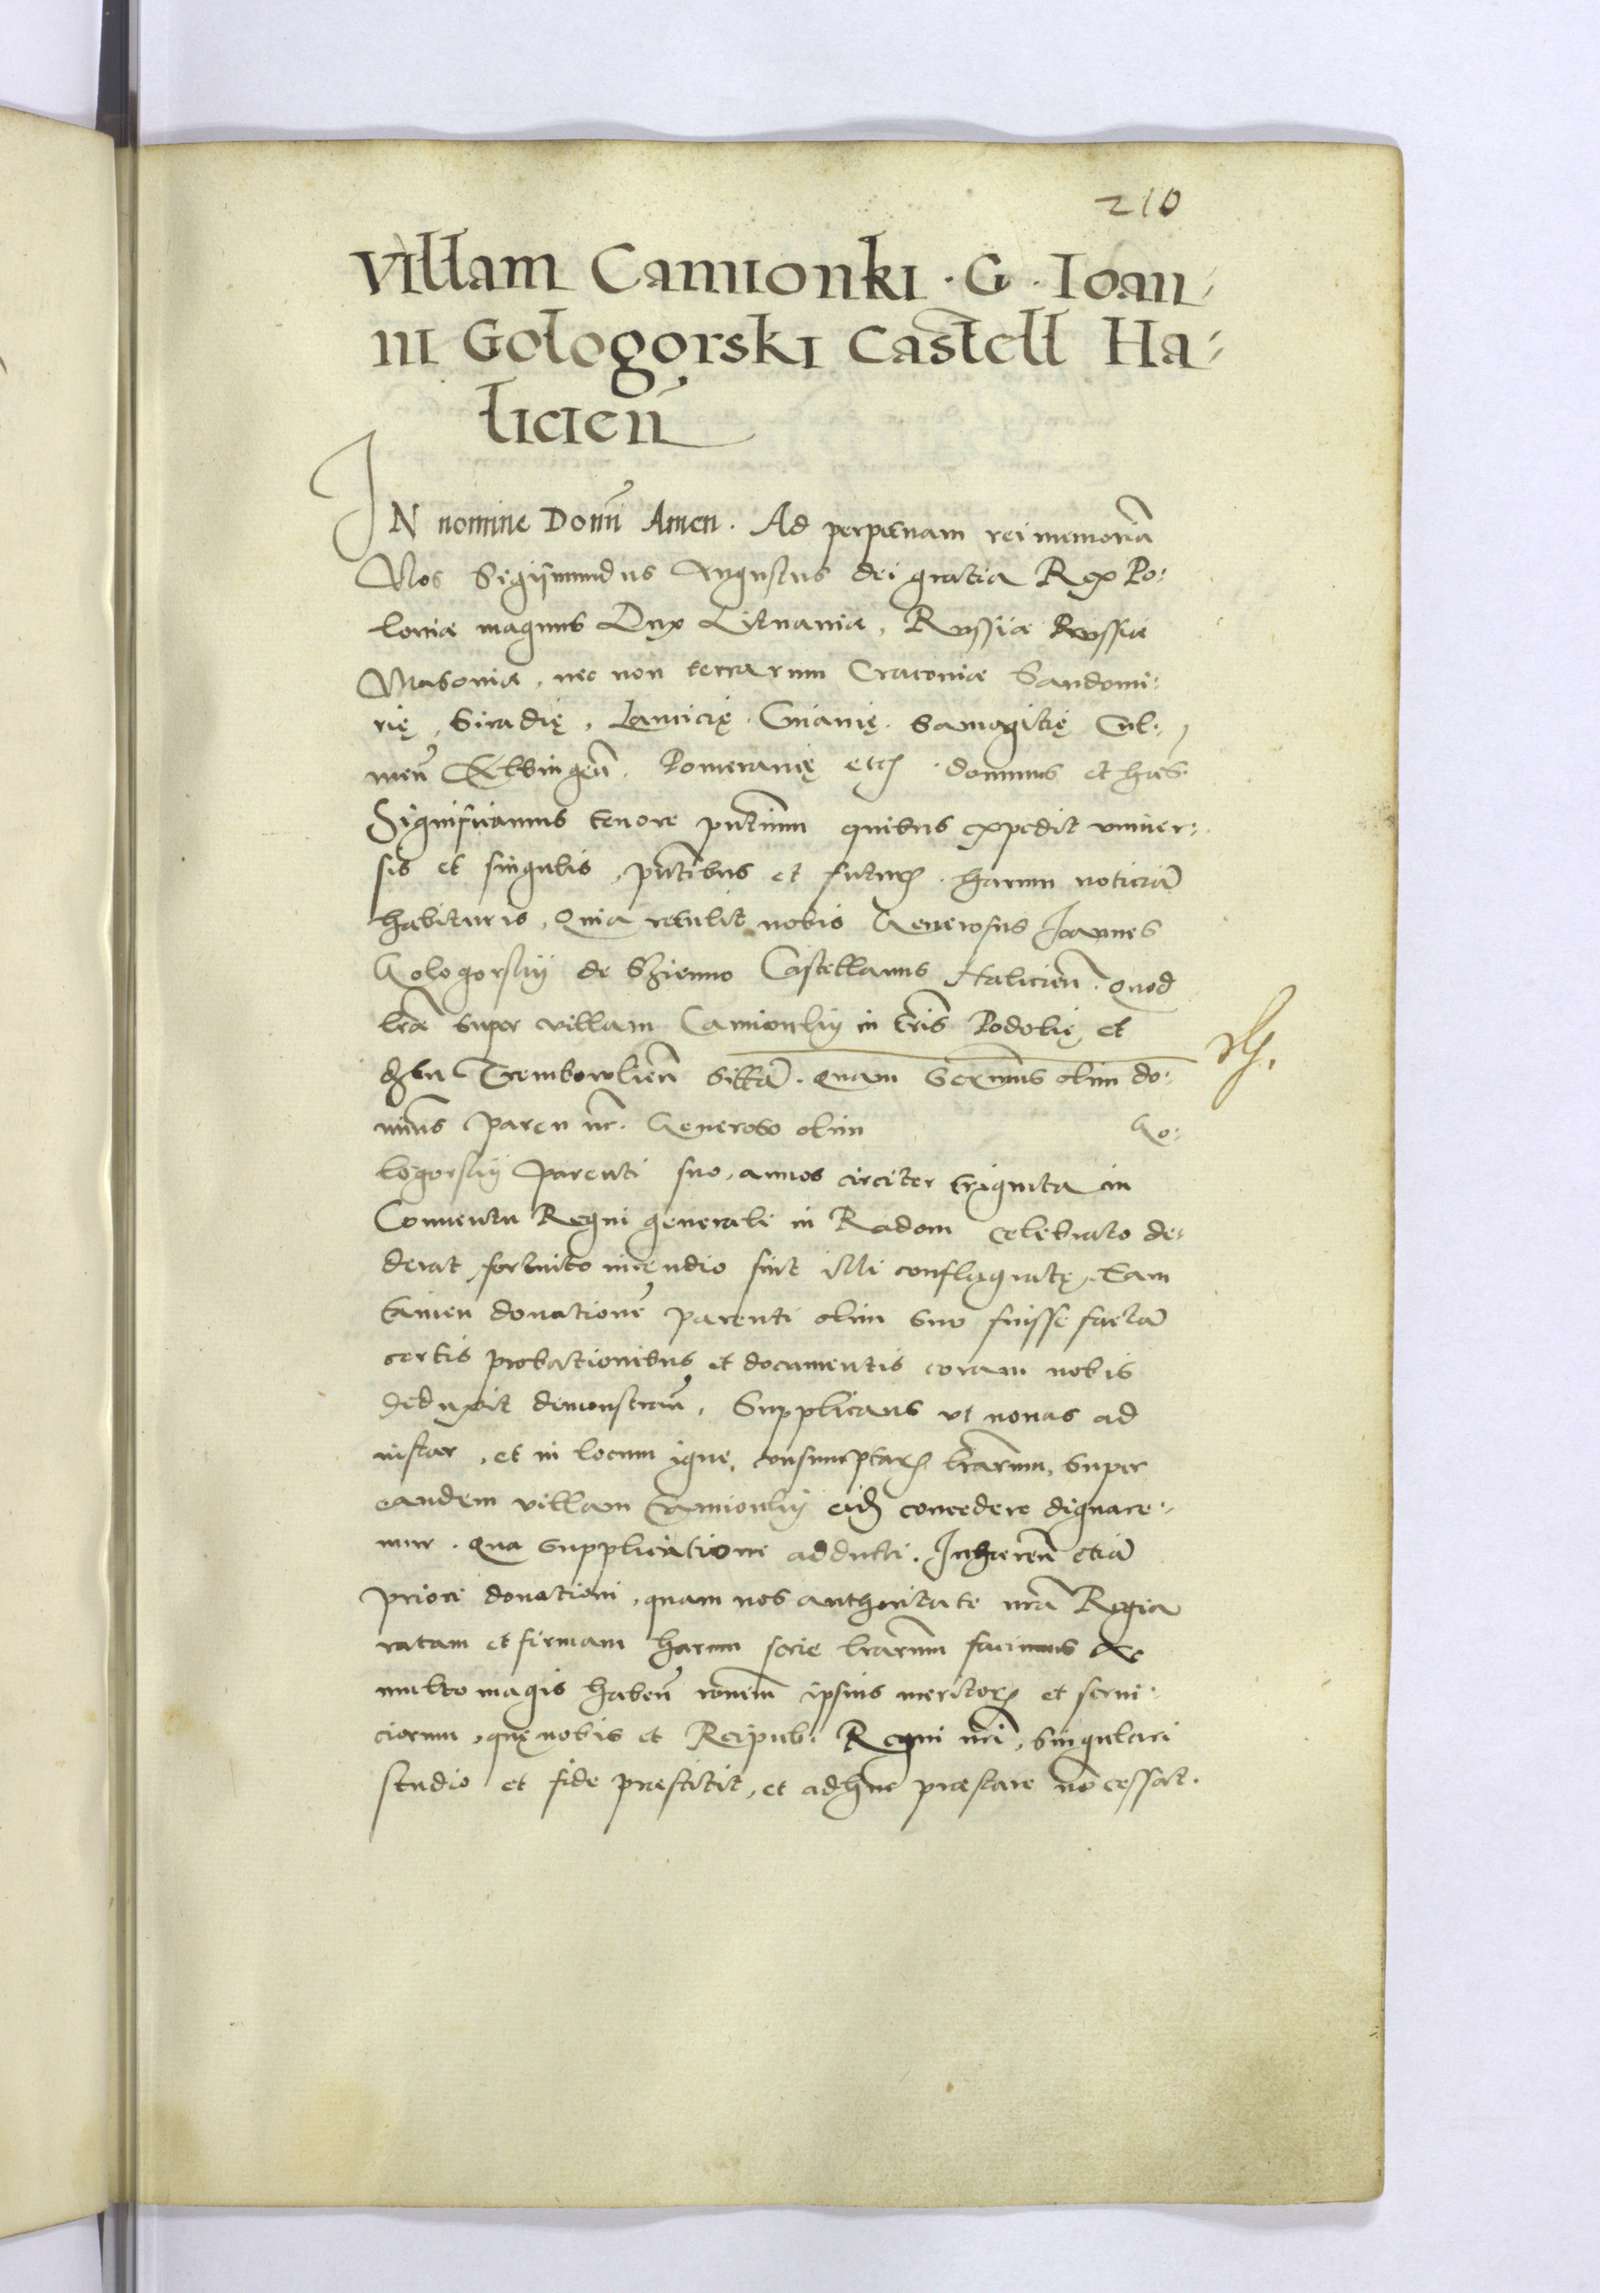 210
Villam Camionki · G · Ioan-
ni Gologorski Castell Ha-
licien̄
IN nomine Domī Amen. Ad perpetuam rei memoriā
Nos Sigijsmundus Augustus dei gratia Rex Po-
loniæ magnus Dux Lituaniæ, Russiæ Prussiæ
Masoviæ, nec non terrarum Cracoviæ Sandomi-
rię, Siradię, Lancicię, Cuiavię, Samogitię Cul-
men̄ Elbingen̄, Pomeranię etc. dominus et hæs.
Significamus tenore p̄ntium quibus expedit univer-
sis et singulis, p̄ntibus et futuris harum noticiā
habituris, Quia retulit nobis Generosus Joannes
Gologorskij de Szienno Castellanus Halicien̄. Quod
lr̄æ super villam Camionkij in tr̄is Podolię et
dist̄u Trembowlien̄ sittā. Quam Sermus olim do-
minus Paren nr̄. Generoso olim Go-
logorskij Parenti suo, annos circiter triginta in
Conventu Regni generali in Radom celebrato de-
derat, fortuito incendio sint illi conflagratę, Eam
tamen donationē parenti olim suo fuisse factā
certis probationibus et documentis coram nobis
deduxit demonstran̄. Supplicans ut novas ad
instar, et in locum igne, consumptar̄ lr̄arum, super
eandem villam Camionkij eid̄ concedere dignare-
mur. Qua supplicatione adducti. Inhæren̄ etiā
priori donationi, quam nos authoritate nr̄a Regia
ratam et firmam harum serie lr̄arum facimus Ac
multo magis haben̄ ronem ipsius meritor̄ et servi-
ciorum, quę nobis et Reipub. Regni nr̄i, singulari
studio et fide præstitit, et adhuc præstare nō cessat.